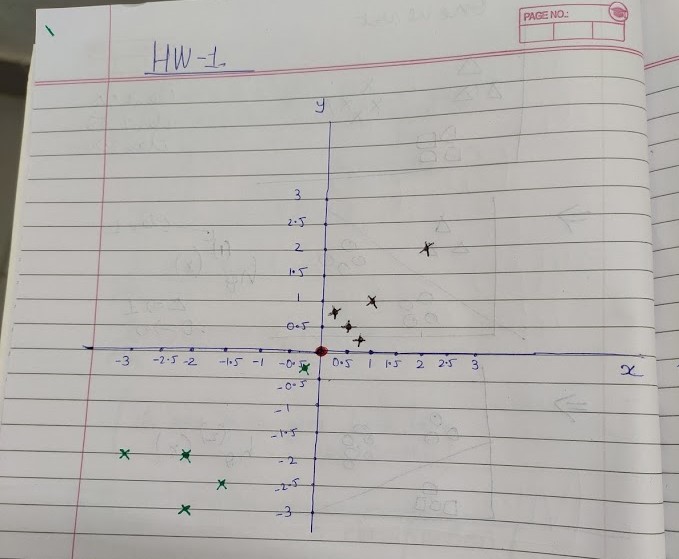 PAGE NO.:
HW-1.
y
3
2.5
2
1.5
1
0.5
-3 -2.5 -2 -1.5 -1 -0.5 0.5 1 1.5 2 2.5 3
x
-0.5
-1
-1.5
-2
-2.5
-3